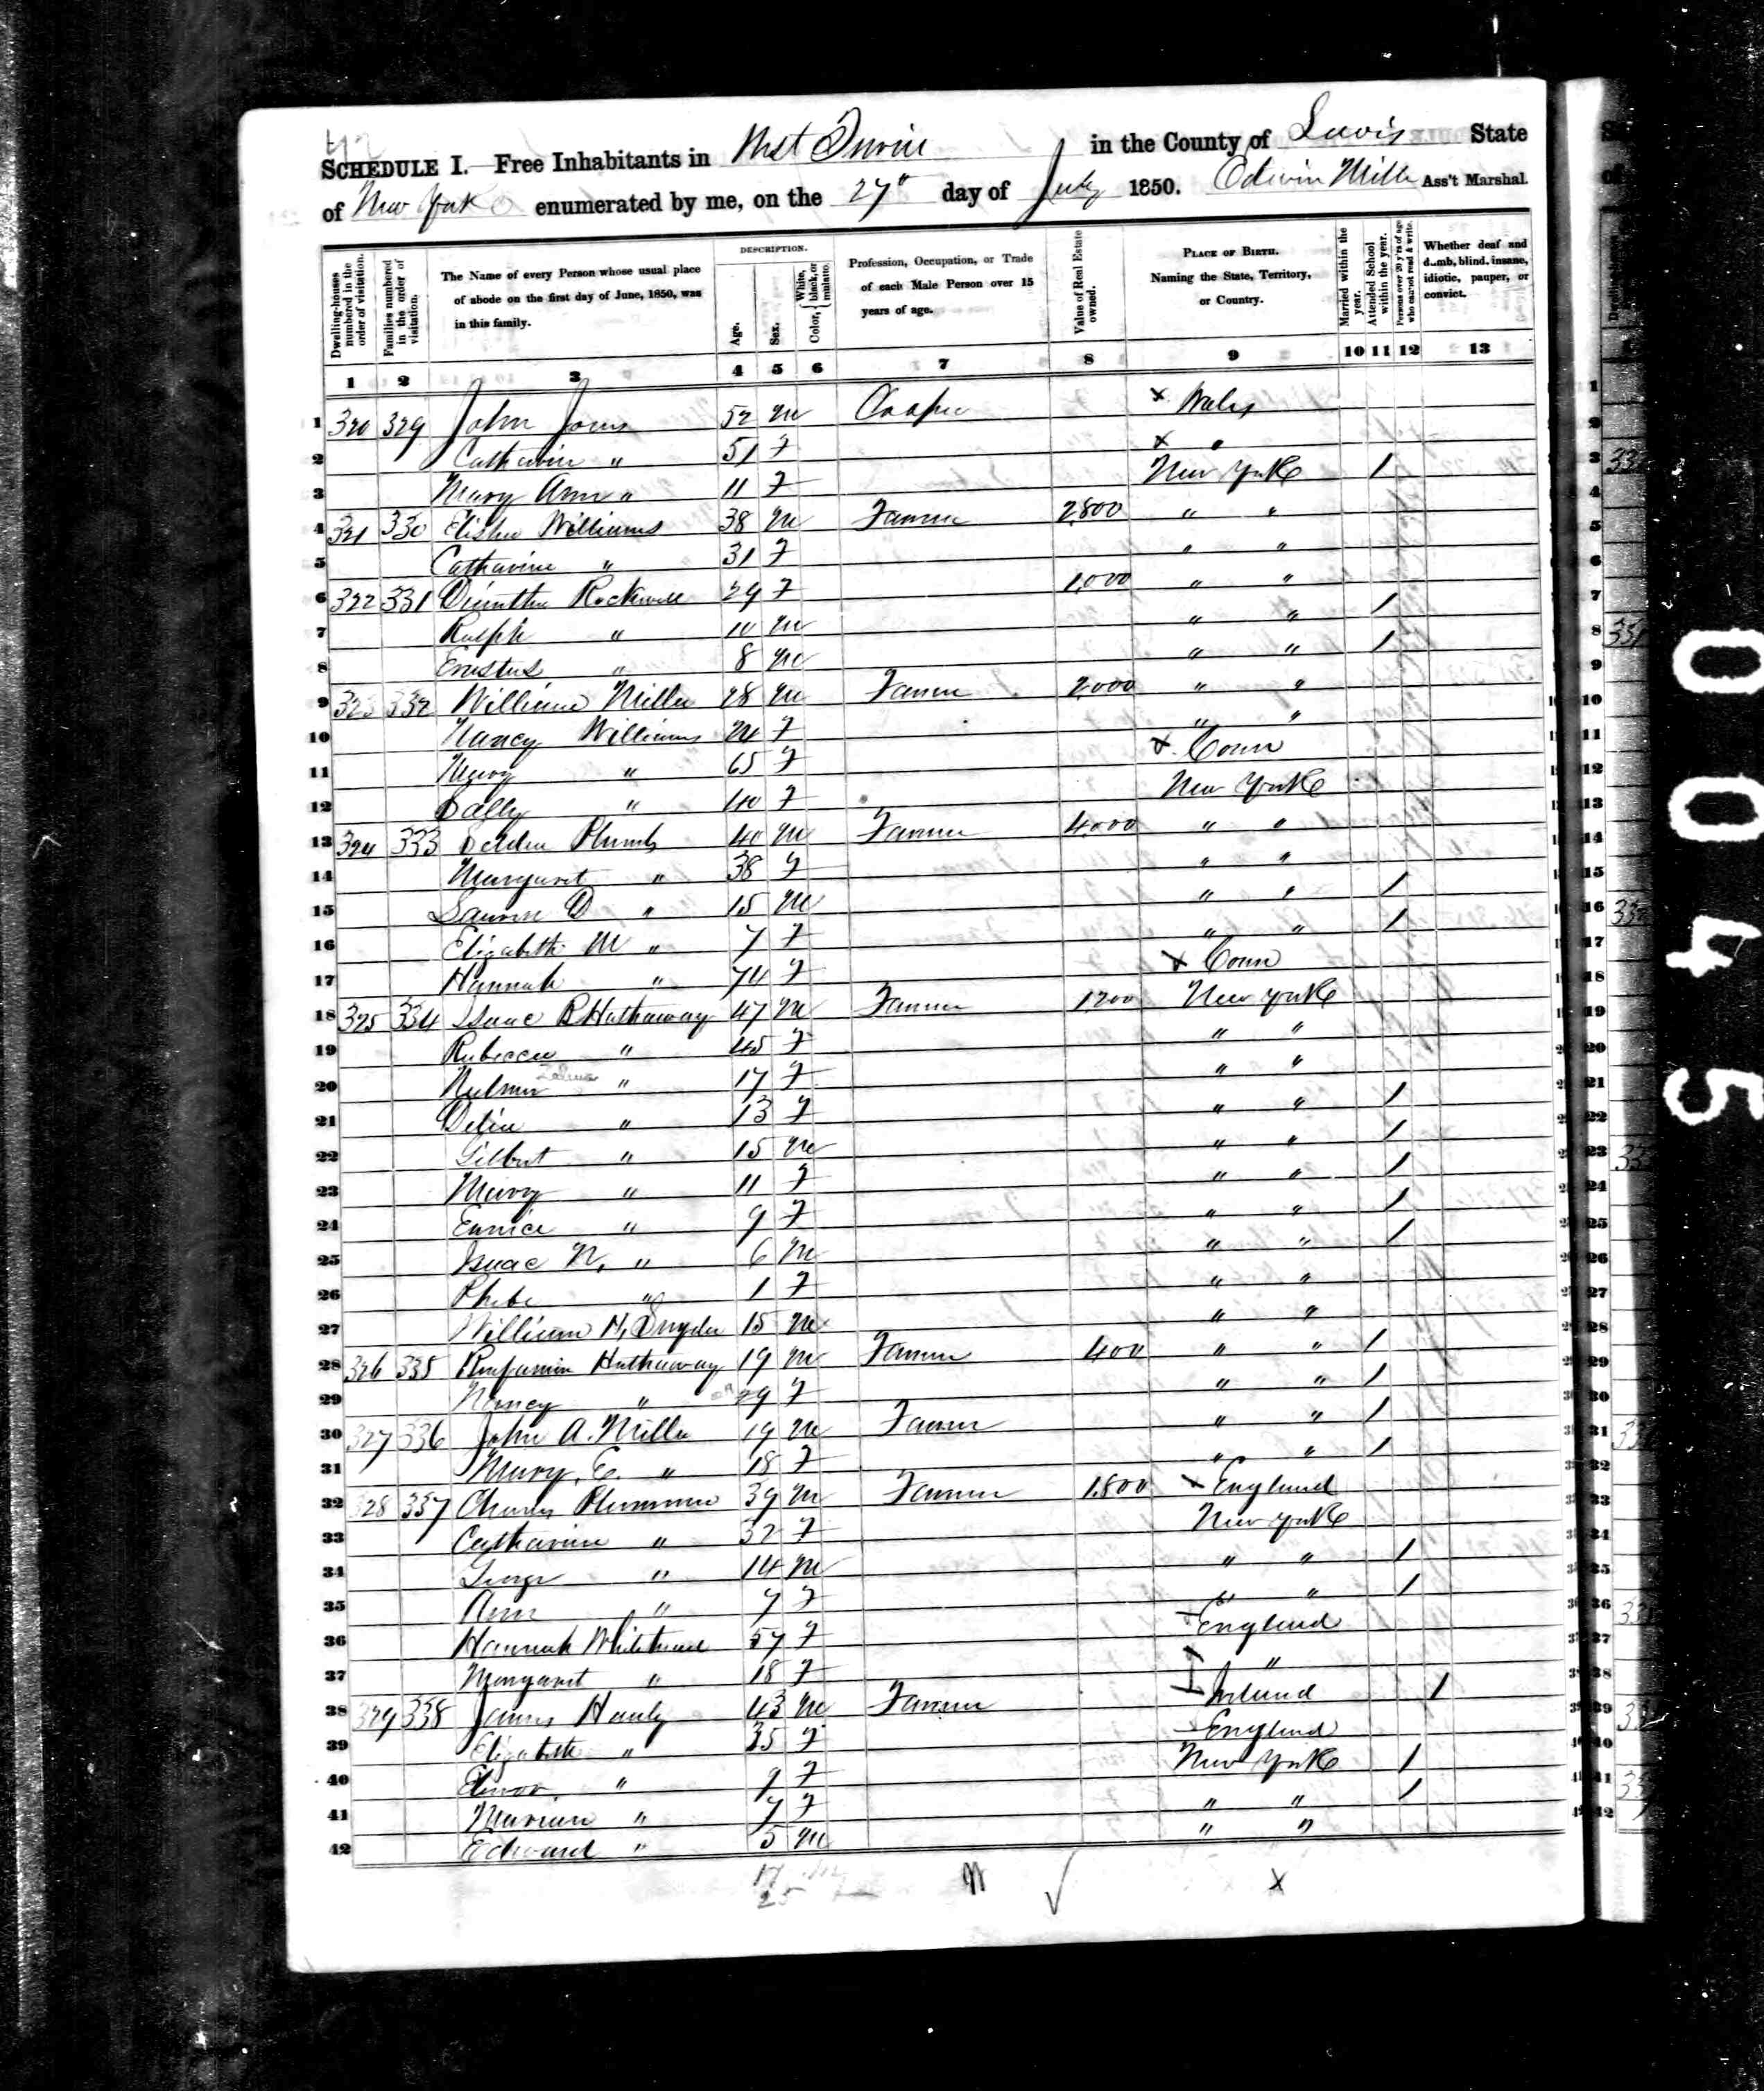 42
SCHEDULE I.—Free Inhabitants in West Turin in the County of Lewis State
of New York enumerated by me, on the 27" day of July 1850. Edwin Miller Ass't Marshal.
Dwelling-houses numbered in the order of visitation.
Families numbered in the order of visitation.
The Name of every Person whose usual place of abode on the first day of June, 1850, was in this family.
DESCRIPTION.
Age.
Sex.
Color, { White, black, or mulatto.
Profession, Occupation, or Trade of each Male Person over 15 years of age.
Value of Real Estate owned.
PLACE OF BIRTH. Naming the State, Territory, or Country.
Married within the year.
Attended School within the year.
Persons over 20 y'rs of age who cannot read & write.
Whether deaf and dumb, blind, insane, idiotic, pauper, or convict.
1 2 3 4 5 6 7 8 9 10 11 12 13
1 320 329 John Jones 52 M Cooper x Wales
2 Catharine " 51 F x "
3 Mary Ann " 11 F New York /
4 321 330 Elisha Williams 38 M Farmer 2,800 " "
5 Catharine " 31 F " "
6 322 331 Rockwell 29 F 1,000 " "
7 Ralph " 10 M " " /
8 Erastus " 8 M " " /
9 323 332 William Miller 28 M Farmer 2,000 " "
10 Nancy Williams 24 F " "
11 Mary " 65 F x Conn
12 Sally " 40 F New York
13 324 333 Selden Plumb 40 M Farmer 4,000 " "
14 Margaret " 38 F " "
15 D " 15 M " " /
16 Elizabeth M " 7 F " " /
17 Hannah " 74 F x Conn
18 325 334 Isaac B Hathaway 47 M Farmer 1,200 New York
19 Rebecca " 45 F " "
20 " 17 F " "
21 Delia " 13 F " " /
22 Gilbert " 15 M " " /
23 Mary " 11 F " " /
24 Eunice " 9 F " " /
25 Isaac N. " 6 M " " /
26 Phebe " 1 F " "
27 William H. Snyder 15 M " "
28 326 335 Benjamin Hathaway 19 M Farmer 400 " " /
29 Nancy " 29 F " " /
30 327 336 John A. Miller 19 M Farmer " " /
31 Mary E. " 18 F " " /
32 328 337 Charles Plummer 39 M Farmer 1,800 x England
33 Catharine " 32 F New York
34 George " 14 M " " /
35 Ann " 7 F " " /
36 Hannah 57 F England
37 Margaret " 18 F "
38 329 338 James Hanly 43 M Farmer Ireland /
39 Elizabeth " 35 F England
40 Elinor " 9 F New York /
41 Marian " 7 F " " /
42 Edward " 5 M " "
17
25
x
0045